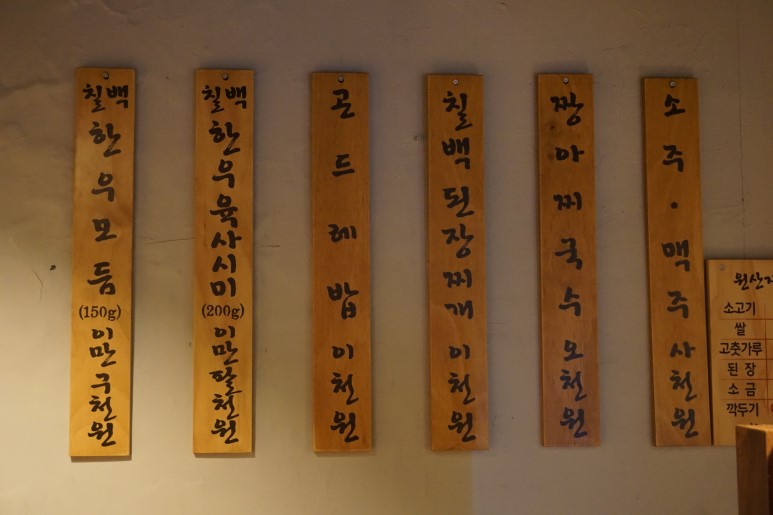 칠백 한우모둠 (150g) 이만구천원
칠백 한우육사시미 (200g) 이만팔천원
곤드레밥 이천원
칠백된장찌개 이천원
짱아찌국수 오천원
소주·맥주 사천원
원산
소고기
쌀
고춧가루
된장
소금
깍두기